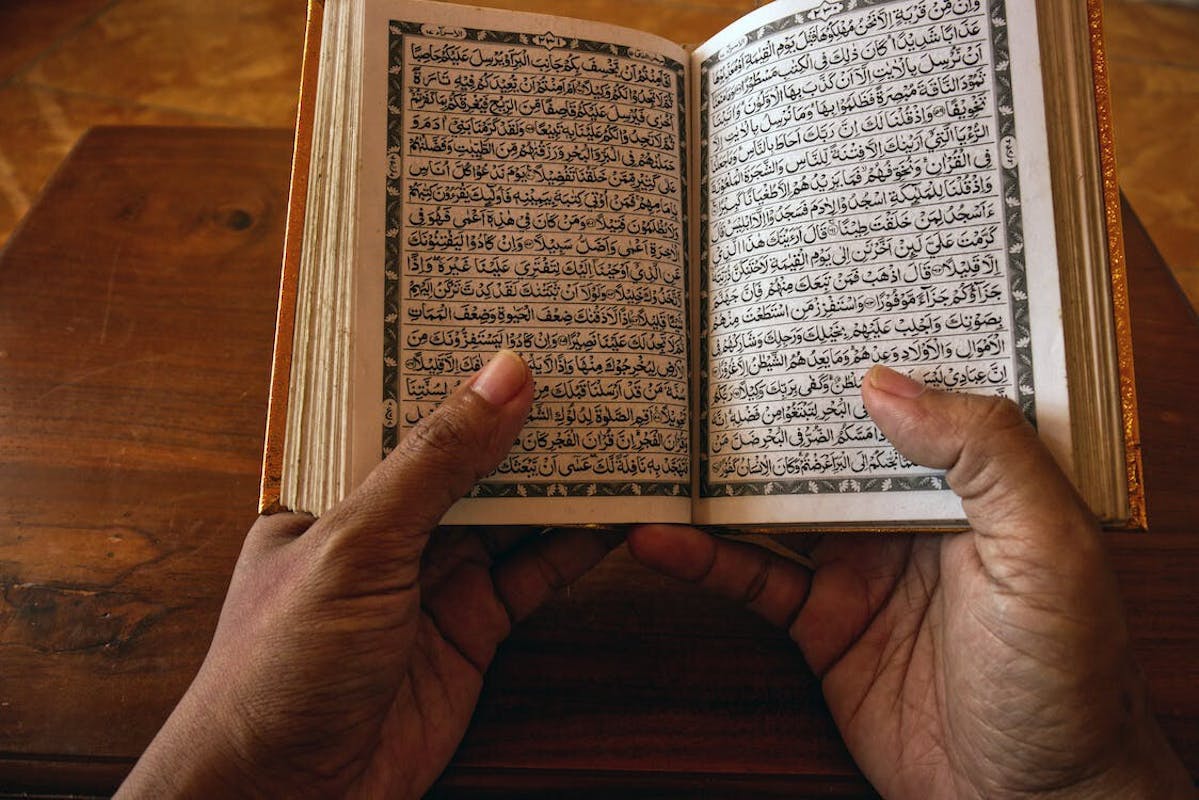 ٢٣٠
وَاِنْ مِّنْ قَرْيَةٍ اِلَّا نَحْنُ مُهْلِكُوْهَا قَبْلَ يَوْمِ الْقِيٰمَةِ اَوْ مُعَذِّبُوْهَا
عَذَابًا شَدِيْدًا كَانَ ذٰلِكَ فِى الْكِتٰبِ مَسْطُوْرًا وَمَا مَنَعَنَآ
اَنْ نُّرْسِلَ بِالْاٰيٰتِ اِلَّآ اَنْ كَذَّبَ بِهَا الْاَوَّلُوْنَ وَاٰتَيْنَا
ثَمُوْدَ النَّاقَةَ مُبْصِرَةً فَظَلَمُوْا بِهَا وَمَا نُرْسِلُ بِالْاٰيٰتِ اِلَّا
تَخْوِيْفًا وَاِذْ قُلْنَا لَكَ اِنَّ رَبَّكَ اَحَاطَ بِالنَّاسِ وَمَا جَعَلْنَا
الرُّءْيَا الَّتِيْٓ اَرَيْنٰكَ اِلَّا فِتْنَةً لِّلنَّاسِ وَالشَّجَرَةَ الْمَلْعُوْنَةَ
فِى الْقُرْاٰنِ وَنُخَوِّفُهُمْ فَمَا يَزِيْدُهُمْ اِلَّا طُغْيَانًا كَبِيْرًا
وَاِذْ قُلْنَا لِلْمَلٰٓئِكَةِ اسْجُدُوْا لِاٰدَمَ فَسَجَدُوْٓا اِلَّآ اِبْلِيْسَ قَالَ
ءَاَسْجُدُ لِمَنْ خَلَقْتَ طِيْنًا قَالَ اَرَءَيْتَكَ هٰذَا الَّذِيْ
كَرَّمْتَ عَلَيَّ لَئِنْ اَخَّرْتَنِ اِلٰى يَوْمِ الْقِيٰمَةِ لَاَحْتَنِكَنَّ ذُرِّيَّتَهٗٓ
اِلَّا قَلِيْلًا قَالَ اذْهَبْ فَمَنْ تَبِعَكَ مِنْهُمْ فَاِنَّ جَهَنَّمَ
جَزَآؤُكُمْ جَزَآءً مَّوْفُوْرًا وَاسْتَفْزِزْ مَنِ اسْتَطَعْتَ مِنْهُمْ
بِصَوْتِكَ وَاَجْلِبْ عَلَيْهِمْ بِخَيْلِكَ وَرَجِلِكَ وَشَارِكْهُمْ فِى
الْاَمْوَالِ وَالْاَوْلَادِ وَعِدْهُمْ وَمَا يَعِدُهُمُ الشَّيْطٰنُ اِلَّا غُرُوْرًا
اِنَّ عِبَادِيْ لَيْسَ سُلْطٰنٌ وَكَفٰى بِرَبِّكَ وَكِيْلًا رَبُّكُمُ
فِى الْبَحْرِ لِتَبْتَغُوْا مِنْ فَضْلِهٖ اِنَّهٗ
مَسَّكُمُ الضُّرُّ فِى الْبَحْرِ ضَلَّ مَنْ
نَجّٰىكُمْ اِلَى الْبَرِّ اَعْرَضْتُمْ وَكَانَ الْاِنْسَانُ كَفُوْرًا
٢٣١
اَفَاَمِنْتُمْ اَنْ يَّخْسِفَ بِكُمْ جَانِبَ الْبَرِّ اَوْ يُرْسِلَ عَلَيْكُمْ حَاصِبًا
ثُمَّ لَا تَجِدُوْا لَكُمْ وَكِيْلًا اَمْ اَمِنْتُمْ اَنْ يُّعِيْدَكُمْ فِيْهِ تَارَةً
اُخْرٰى فَيُرْسِلَ عَلَيْكُمْ قَاصِفًا مِّنَ الرِّيْحِ فَيُغْرِقَكُمْ بِمَا كَفَرْتُمْ
ثُمَّ لَا تَجِدُوْا لَكُمْ عَلَيْنَا بِهٖ تَبِيْعًا وَلَقَدْ كَرَّمْنَا بَنِيْٓ اٰدَمَ وَ
حَمَلْنٰهُمْ فِى الْبَرِّ وَالْبَحْرِ وَرَزَقْنٰهُمْ مِّنَ الطَّيِّبٰتِ وَفَضَّلْنٰهُمْ
عَلٰى كَثِيْرٍ مِّمَّنْ خَلَقْنَا تَفْضِيْلًا يَوْمَ نَدْعُوْا كُلَّ اُنَاسٍ
بِاِمَامِهِمْ فَمَنْ اُوْتِيَ كِتٰبَهٗ بِيَمِيْنِهٖ فَاُولٰٓئِكَ يَقْرَءُوْنَ كِتٰبَهُمْ
وَلَا يُظْلَمُوْنَ فَتِيْلًا وَمَنْ كَانَ فِيْ هٰذِهٖٓ اَعْمٰى فَهُوَ فِى
الْاٰخِرَةِ اَعْمٰى وَاَضَلُّ سَبِيْلًا وَاِنْ كَادُوْا لَيَفْتِنُوْنَكَ
عَنِ الَّذِيْٓ اَوْحَيْنَآ اِلَيْكَ لِتَفْتَرِيَ عَلَيْنَا غَيْرَهٗ وَاِذًا
لَّاتَّخَذُوْكَ خَلِيْلًا وَلَوْلَآ اَنْ ثَبَّتْنٰكَ لَقَدْ كِدْتَّ تَرْكَنُ اِلَيْهِمْ
شَيْـًٔا قَلِيْلًا اِذًا لَّاَذَقْنٰكَ ضِعْفَ الْحَيٰوةِ وَضِعْفَ الْمَمَاتِ
ثُمَّ لَا تَجِدُ لَكَ عَلَيْنَا نَصِيْرًا وَاِنْ كَادُوْا لَيَسْتَفِزُّوْنَكَ مِنَ
الْاَرْضِ لِيُخْرِجُوْكَ مِنْهَا وَاِذًا لَّا اِلَّا قَلِيْلًا
سُنَّةَ مَنْ قَدْ اَرْسَلْنَا قَبْلَكَ مِنْ لِسُنَّتِنَا
تَحْوِيْلًا اَقِمِ الصَّلٰوةَ لِدُلُوْكِ الشَّمْسِ
وَقُرْاٰنَ الْفَجْرِ اِنَّ قُرْاٰنَ الْفَجْرِ كَانَ
فَتَهَجَّدْ بِهٖ نَافِلَةً لَّكَ عَسٰٓى اَنْ يَّبْعَثَكَ